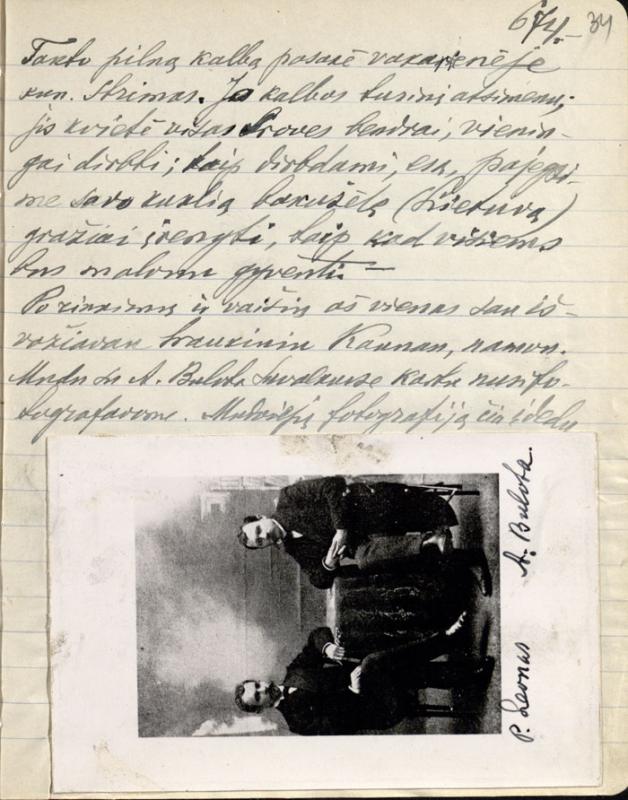 674. 34
Takto pilną kalbą pasakė vakarienėje
kun. Strimas. Jo kalbos turinį atsimenu;
jis kvietė visas sroves bendrai, vienin-
gai dirbti; taip dirbdami, esą, pajėgsi-
me savo kuklią bakužėlę (Lietuvą)
gražiai įrengti, taip kad visiems
bus malonu gyventi. —
Po rinkimų ir vaišių aš vienas iš-
važiavau traukiniu Kaunan, namon.
Mudu su A. Bulota Suvalkuose kartu nusifo-
tografavome. Mudviejų fotografiją čia įdedu
P. Leonas A. Bulota.